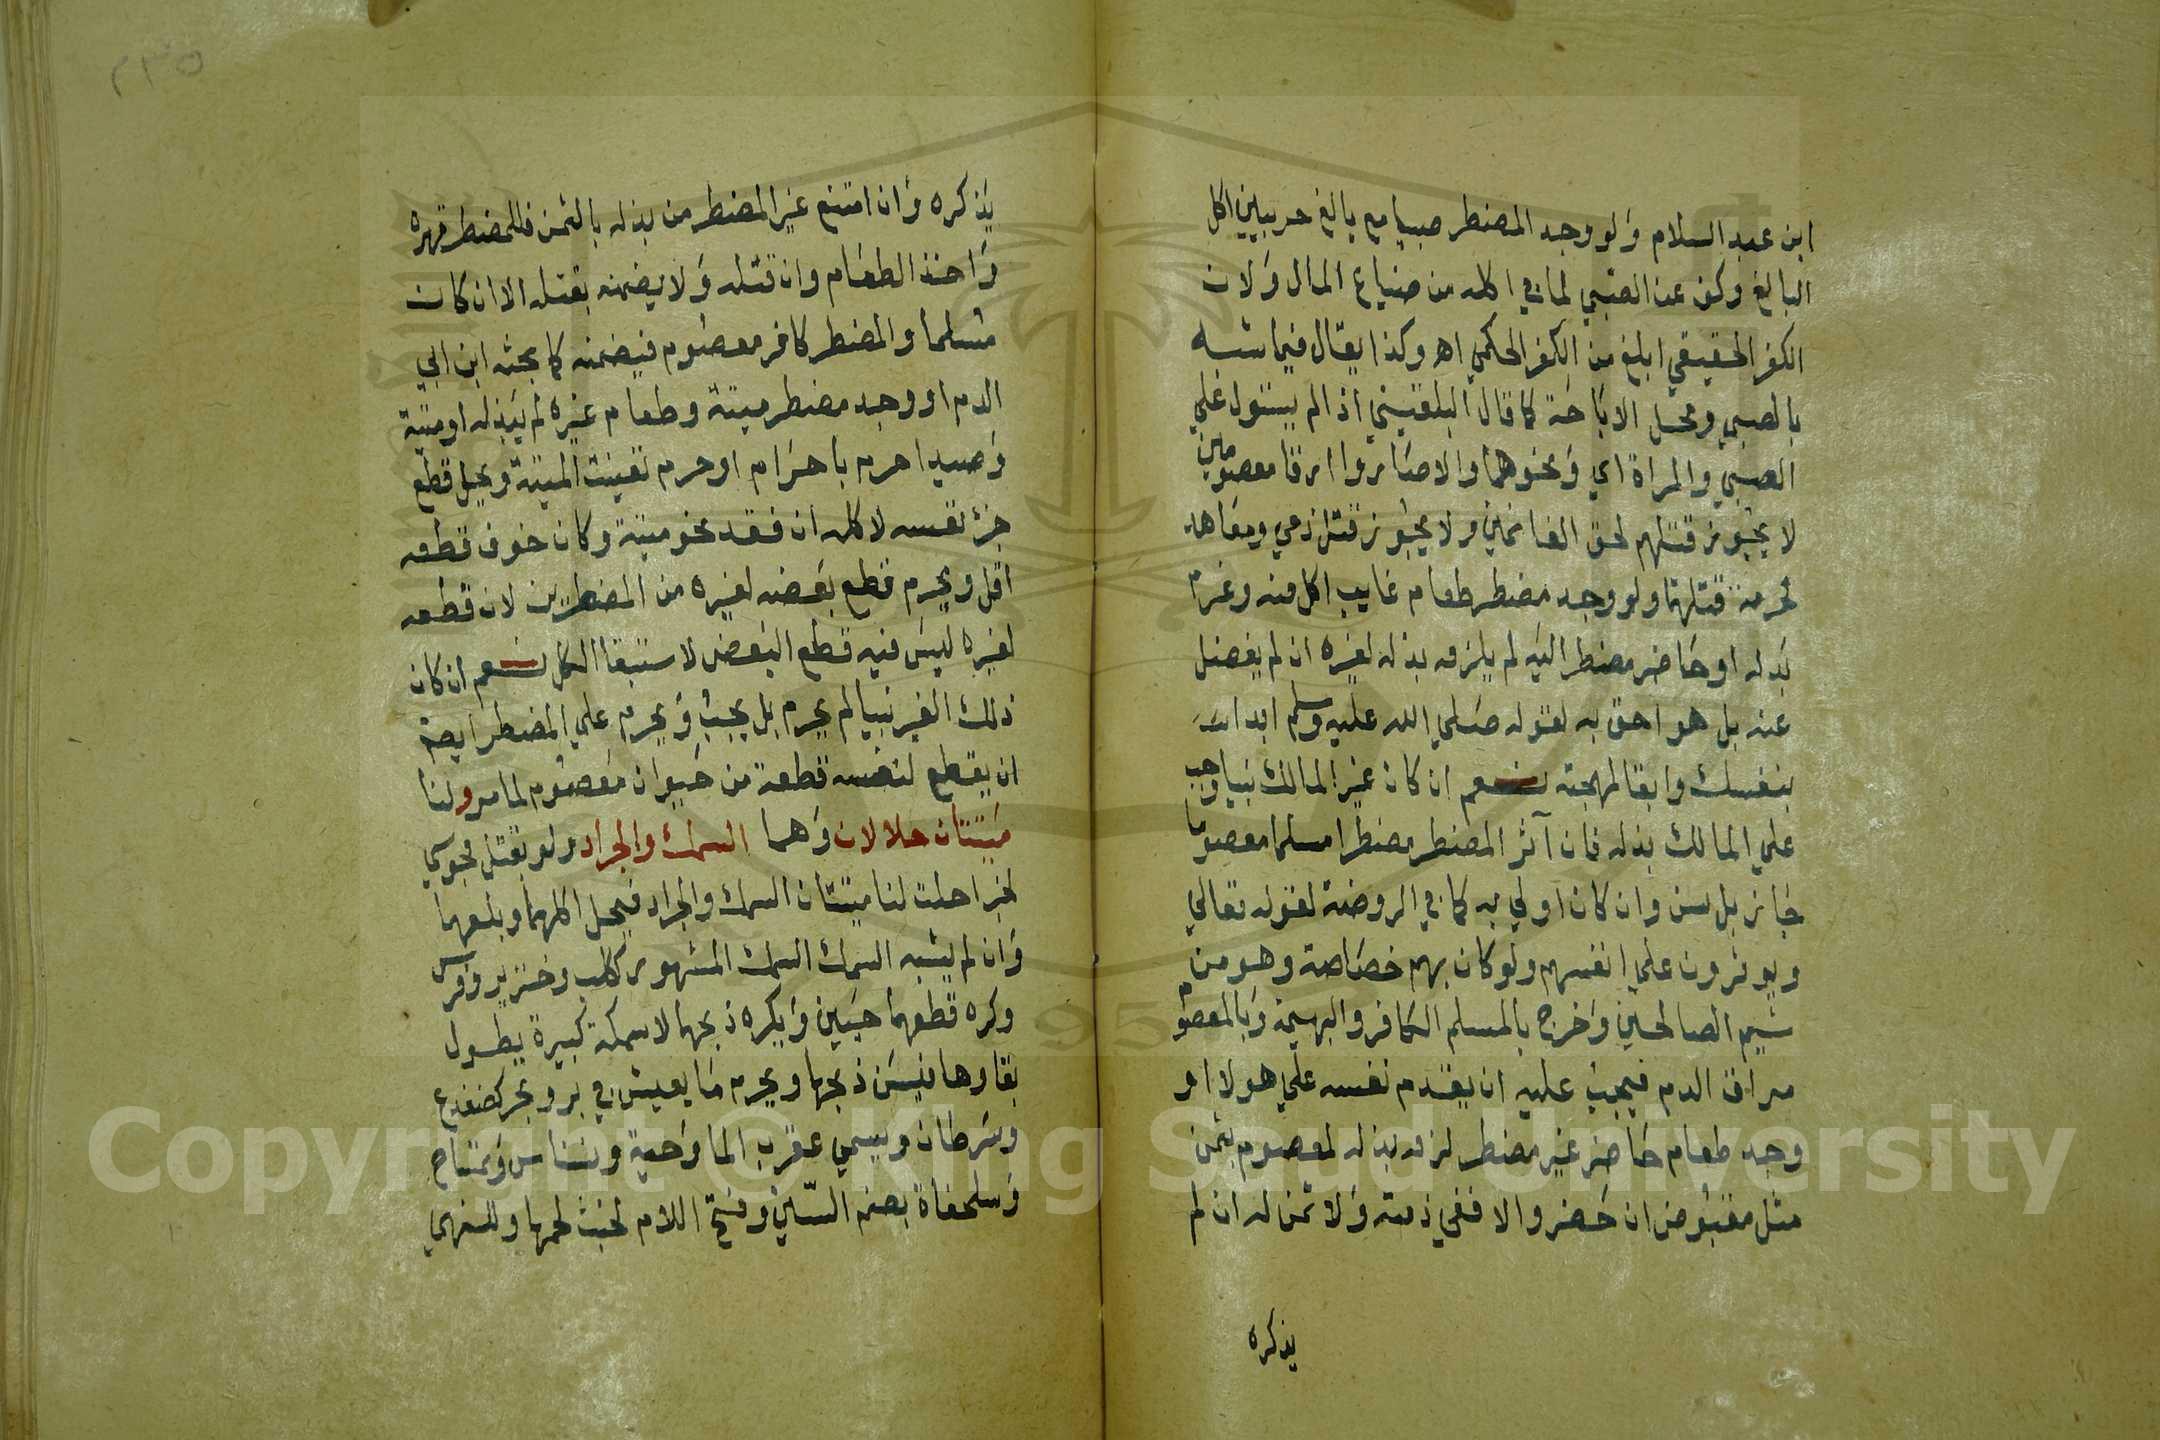 ابن عبد السلام ولو وجد المضطر صبيا مع بالغ حربيين اكل
البالغ وكف عن الصبي لما في اكله من ضياع المال ولان
الكفر الحقيقي ابلغ من الكفر الحكمي اه وكذا يقال فيما شبه
بالصبي ومحل الاباحة كما قال البلقيني اذا لم يستول علي
الصبي والمراة اي ونحوهما والا صاروا ارقا معصومين
لا يجوز قتلهم لحق الغانمين ولا يجوز قتل ذمي ومعاهد
لحرمة قتلهما ولو وجد مضطر طعام غايب اكل منه وغرم
بدله او حاضر مضطر اليه لم يلزمه بذله لغيره ان لم يفضل
عنه بل هو احق به لقوله صلي الله عليه وسلم ابدا
بنفسك وابقا لمهجته نعم ان كان غير المالك نبيا وجب
علي المالك بذله فان آثر المضطر مضطرا مسلما معصوما
جاز بل سن وان كان اولي به كما في الروضة لقوله تعالي
ويوثرون علي انفسهم ولو كان بهم خصاصة وهو من
شيم الصالحين وخرج بالمسلم الكافر والبهيمة وبالمعصوم
مراق الدم فيجب عليه ان يقدم نفسه علي هولا او
وجد طعام حاضر غير مضطر لزمه بذله لمعصوم بثمن
مثل مقبوض ان حضر والا ففي ذمته ولا ثمن له ان لم
يذكره
يذكره وان امتنع غير المضطر من بذله بالثمن فللمضطر قهره
واخذ الطعام وان قتله ولا يضمنه بقتله الا ان كان
مسلما والمضطر كافر معصوم فيضمنه كما بحثه ابن ابي
الدم او وجد مضطر ميتة وطعام غيره لم يبذله او ميتة
وصيدا حرم باحرام او حرم تعينت الميتة ويحل قطع
جزء نفسه لاكله ان فقد نحو ميتة وكان خوف قطعه
اقل ويحرم قطع بعضه لغيره من المضطرين لان قطعه
لغيره ليس فيه قطع البعض لاستبقا الكل نعم ان كان
ذلك الغير نبيا لم يحرم بل يجب ويحرم علي المضطر ايضا
ان يقطع لنفسه قطعة من حيوان معصوم لما مر ولنا
ميتتان حلالان وهما السمك والجراد ولو بقتل مجوسي
لخبر احلت لنا ميتتان السمك والجراد فيحل اكلهما وبلعهما
وان لم يشبه السمك السمك المشهور ككلب وخنزير وفرس
وكره قطعهما حيين ويكره ذبحهما لا سمكة كبيرة يطول
بقاوها فيسن ذبحها ويحرم ما يعيش في بر وبحر كضفدع
وسرطان ويسمي عقرب الما وحية ونسناس وتمساح
وسلحفاة بضم السين وفتح اللام لخبث لحمها وللنهي
Copyright © King Saud University